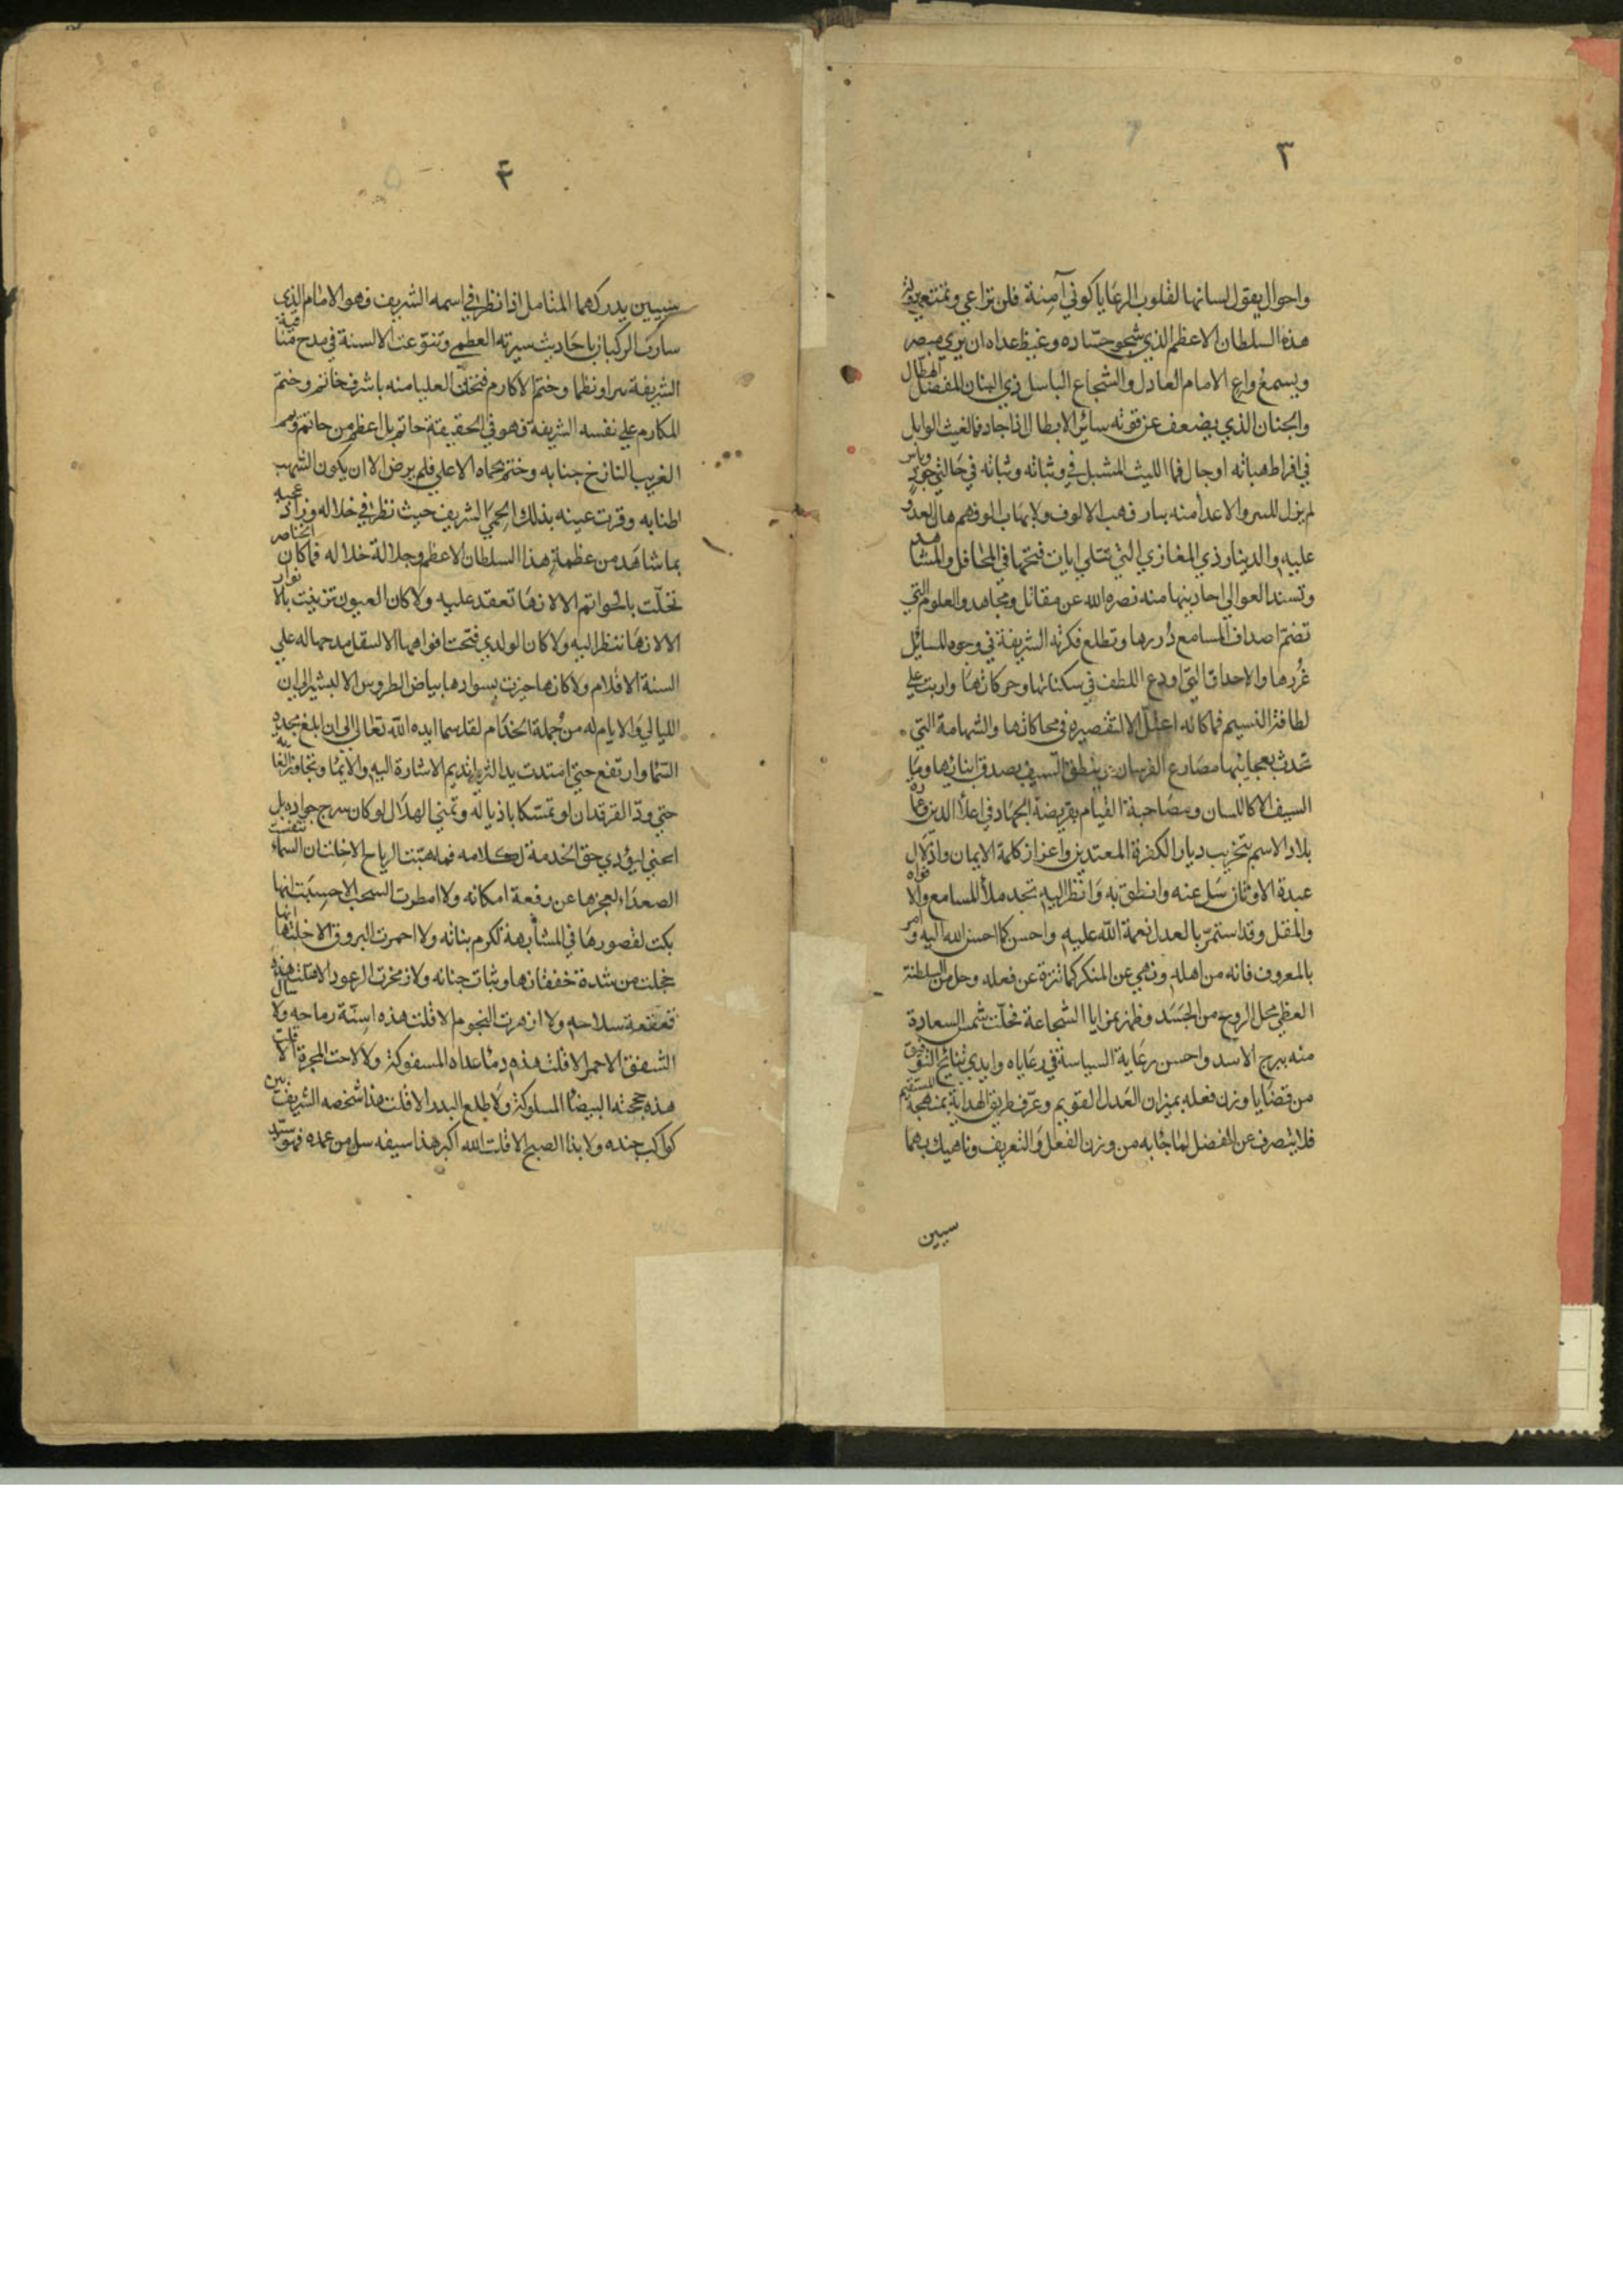 ٣
واحوال يقول لسانها لقلوب الرعايا كوني آمنة فلن تراعي وتمتعي بدولة
هذه السلطان الاعظم الذي شجو حساده وغيظ عداه ان يرى مبصر
ويسمع واع الامام العادل والشجاع الباسل ذي البنان المفضال الهطال
والجنان الذي يضعف عن قوته سائر الابطال اذا جاد فما الغيث الوابل
في افراط هباته او جال فما الليث المشبل في وثباته وثباته في حالتي جود وباس
لم يزل للسر والاعدا منه بار فهب الالوف ولا يهاب الوفهم هان العدو
عليه والدينار وذي المغازي التي تتلى ايات فتحها في المحافل والمشاهد
وتسند العوالي احاديثها منه نصره الله عن مقاتل ومجاهد والعلوم التي
تضم اصداف المسامع دررها وتطلع فكرته الشريفة في وجوه المسائل
غررها والاخلاق التي اودع اللطف في سكناتها وحركاتها واربت على
لطافة النسيم فما كاله اعتل الا لتقصيره في محاكاتها والشهامة التي
تحدث بعجايبها مصارع الفرسان وينطق السيف بصدق ابنائها وما
السيف الا كاللسان ومصاحبة القيام بفريضة الجهاد في اعلا الدين وعمارة
بلاد الاسلام بتخريب ديار الكفرة المعتدين واعزاز كلمة الايمان واذلال
عبدة الاوثان سل عنه وانطق به وانظر اليه تجد ملأ المسامع والافواه
والمقل وقد استمر بالعدل نعمة الله عليه واحسن كما احسن الله اليه وامر
بالمعروف فانه من اهله ونهى عن المنكر كما تنزه عن فعله وحل من السلطنة
العظمى محل الروح من الجسد وظهر بمزايا الشجاعة فحلت شمس السعادة
منه ببرج الاسد واحسن رعاية السياسة في رعاياه وابدى نتائج التوفيق
من قضايا وزن فعله بميزان العدل القويم وعرف طريق الهداية بمنهجه المستقيم
فلا ينصرف عن الفضل لما جابه من وزن الفعل والتعريف وناهيك بهما
سببين
۴
سببين يدركهما المتامل اذا نظر في اسمه الشريف فهو الامام الذي
سارت الركبان باحاديث سيرته العظمى وتنوعت الالسنة في مدح مناقبه
الشريفة نثرا ونظما وختم الاكارم فتحلت العليا منه باشرف خاتم وختم
المكارم على نفسه الشريفة فهو في الحقيقة خاتم بل اعظم من حاتم ويمم
الغريب النازح جنابه وخيم بحماه الاعلى فلم يرض الا ان يكون الشهب
اطنابه وقرت عينه بذلك الحمى الشريف حيث نظر في خلاله وزاد عجبه
بما شاهد من عظمة هذا السلطان الاعظم وجلالة خلاله فما كان الخناصر
تحلت بالخواتم الا لانها تعقد عليه ولا كان العيون تزينت بالانوار
الا لانها تنظر اليه ولا كان لو لدي فتحت افواهها الا لتنقل مدحها له على
السنة الاقلام ولا كانها حيزت بسوادها بياض الطروس الا لبشير الى ان
الليالي والايام له من جملة الخدام لقد سما ايده الله تعالى الى ان ابلغ بمجده
السما وارتفع حتى امتدت يد الثريا تديم الاشارة اليه والايما وتجاوز الغاية
حتى ود الفرقدان لو تمسكا باذياله وتمنى الهلال لو كان سرج جواده بل
انحنى ليؤدي حق الخدمة لكلامه فما هبت الرياح الا خلت ان السماء تنفست
الصعداء لعجزها عن رفعة امكانه ولا امطرت السحب الا حسبت انها
بكت لقصورها في المشابهة لكرم بنانه ولا احمرت البروق الا خلتها انها
خجلت من شدة خفقانها وثبات جنانه ولا زمجرت الرعود الا قلت هذه
قعقعة سلاحه ولا ازهرت النجوم الا قلت هذه اسنة رماحه ولا سال
الشفق الاحمر الا قلت هذه دما عداه المسفوكة ولا لاحت المجرة الا قلت
هذه محجته البيضا المسلوكة ولا طلع البدر الا قلت هذا شخصه الشريف بين
كواكب جنده ولا بدا الصبح الا قلت الله اكبر هذا سيفه سل من غمده فهو سيد